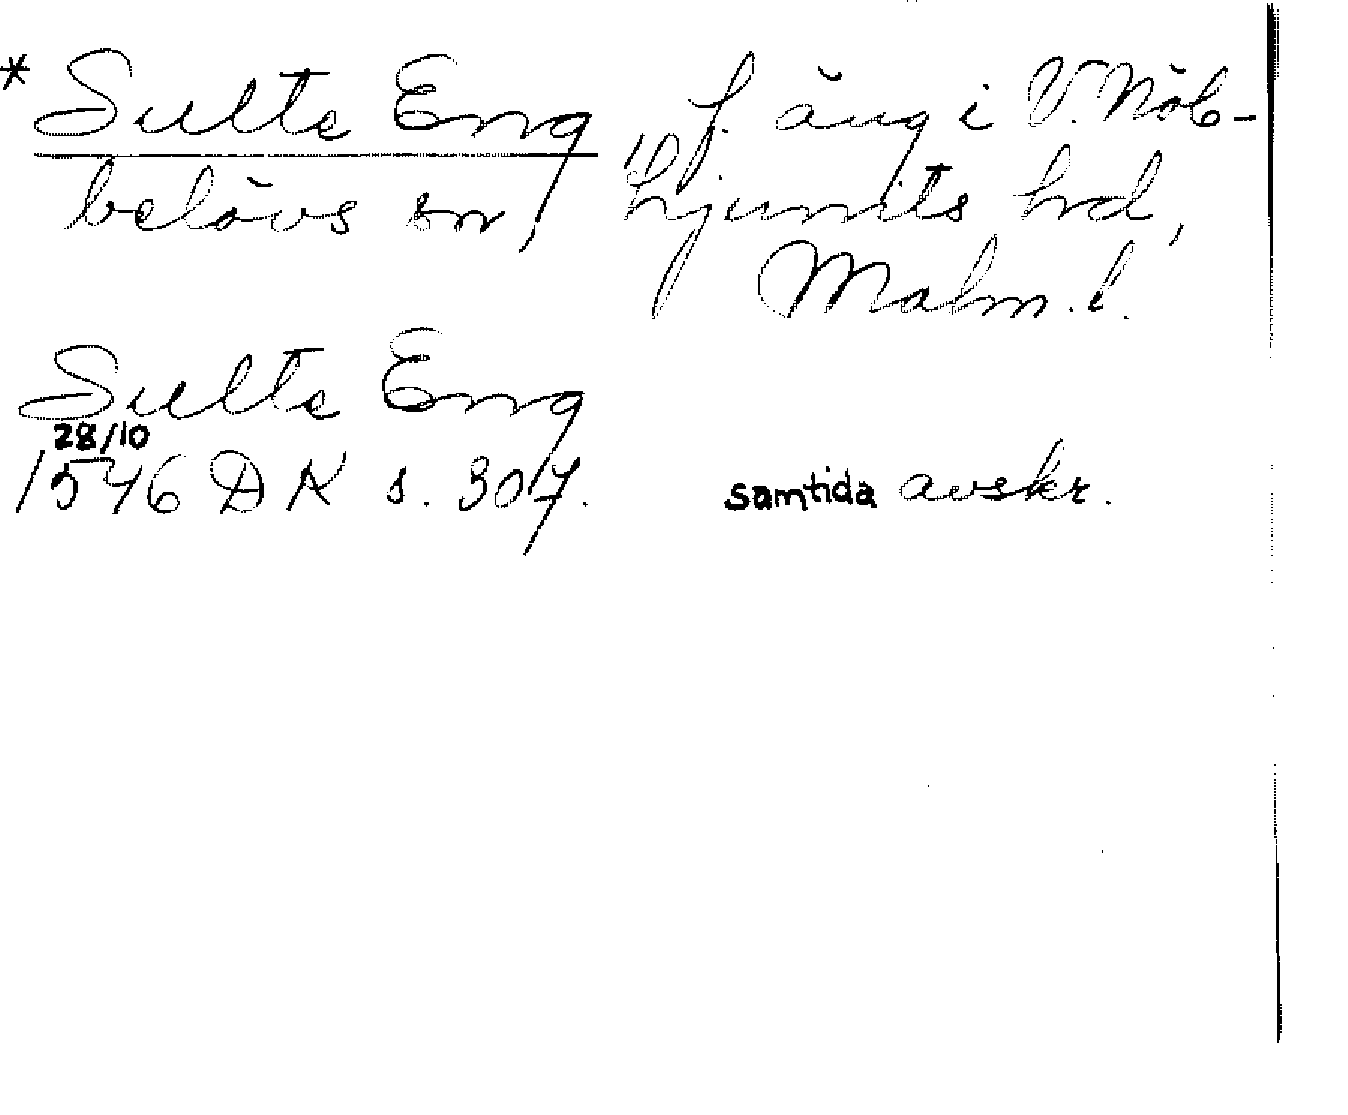 * Sulte Eng, f. äng i V. Nöb-
belövs sn, Ljunits hd,
Malm. l.
Sulte Eng
28/10
1546 DK s. 307. samtida avskr.